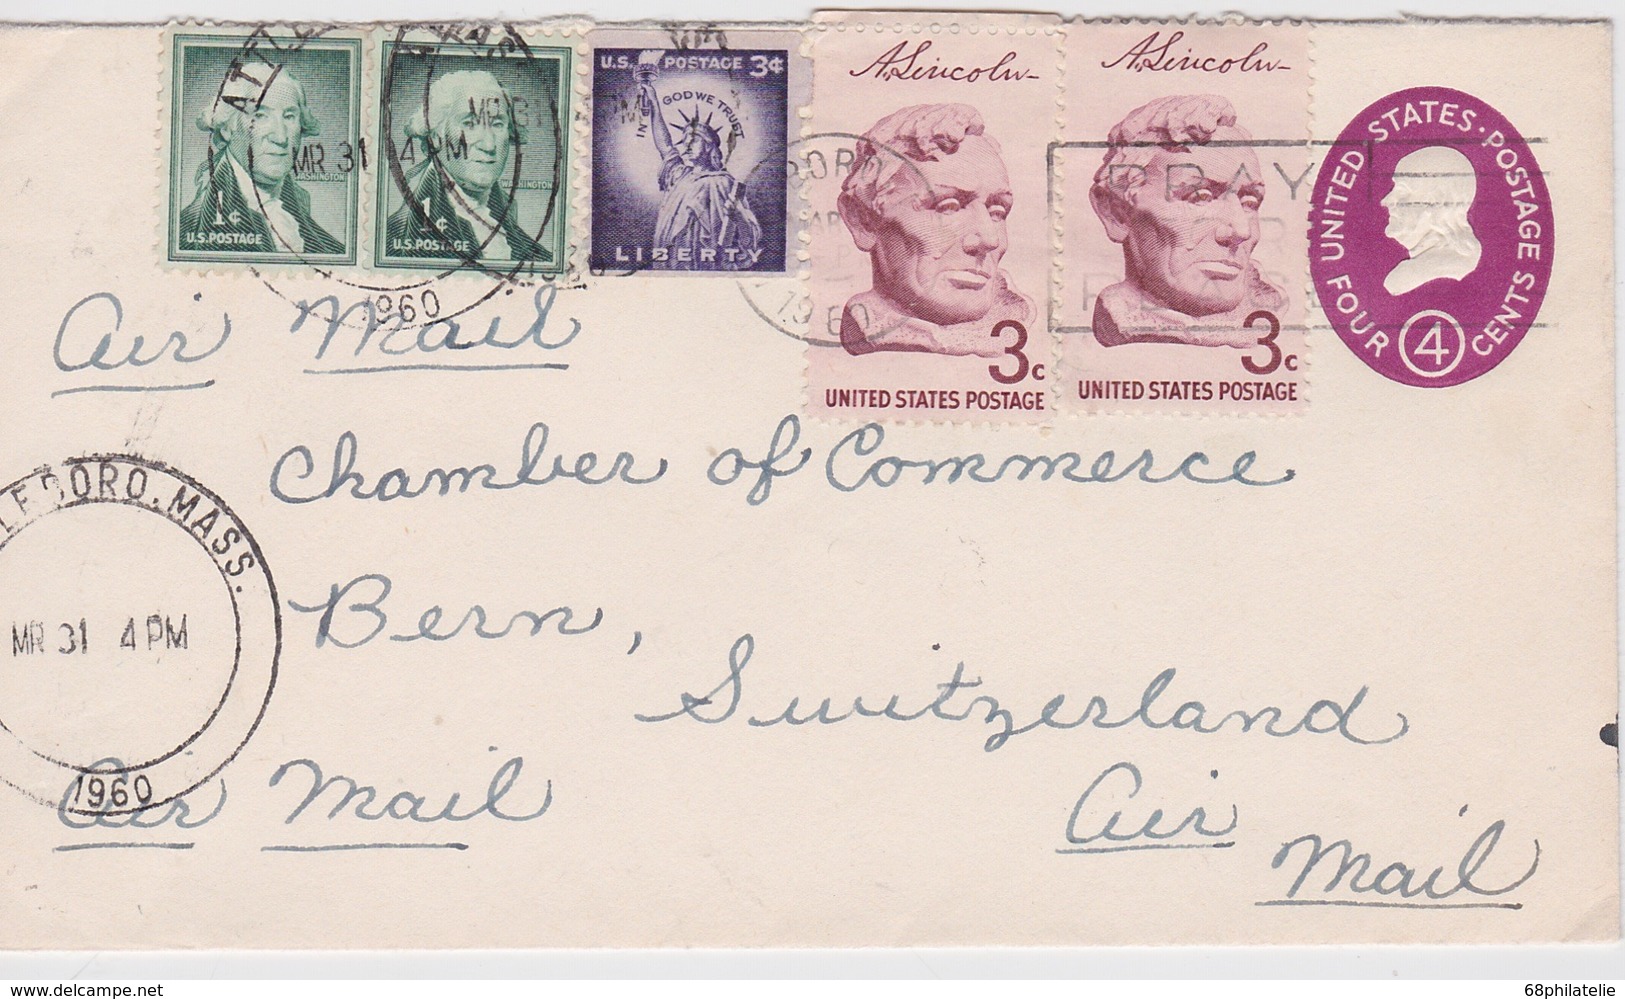 A. Lincoln
A. Lincoln
U.S. POSTAGE 3¢
IN GOD WE TRUST
LIBERTY
WASHINGTON
1¢
U.S. POSTAGE
WASHINGTON
1¢
U.S. POSTAGE
3c
UNITED STATES POSTAGE
3c
UNITED STATES POSTAGE
UNITED STATES · POSTAGE
FOUR 4 CENTS
MR 31 4 PM
1960
MR 31
1960
PRAY
FOR
PEACE
Air Mail
Chamber of Commerce
Bern,
Switzerland
Air Mail
Air
Mail
LEBORO, MASS.
MR 31 4 PM
1960
68philatelie.delcampe.net
68philatelie